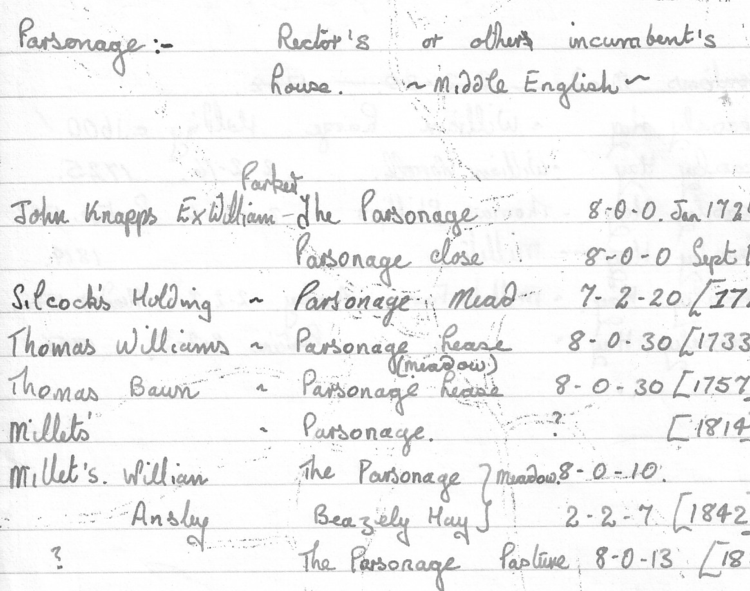 Parsonage :- Rector's or other incumbent's
house. ~ Middle English ~
Parker
John Knapps Ex William - The Parsonage 8-0-0. Jan 172
Parsonage close 8-0-0 Sept 1
Silcock's Holding ~ Parsonage Mead 7-2-20 [17
Thomas Williams ~ Parsonage Lease 8-0-30 [1733
(meadow)
Thomas Bawn ~ Parsonage Lease 8-0-30 [1757
Millets' - Parsonage. ? [1814
Millet's. William The Parsonage } meadow. 8-0-10.
Ansley Beazely Hay } 2-2-7 [1842
? The Parsonage Pasture 8-0-13 [18